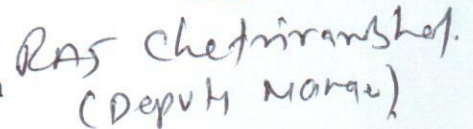 RAJ Chetrivanshof.
(Deputy Manager)